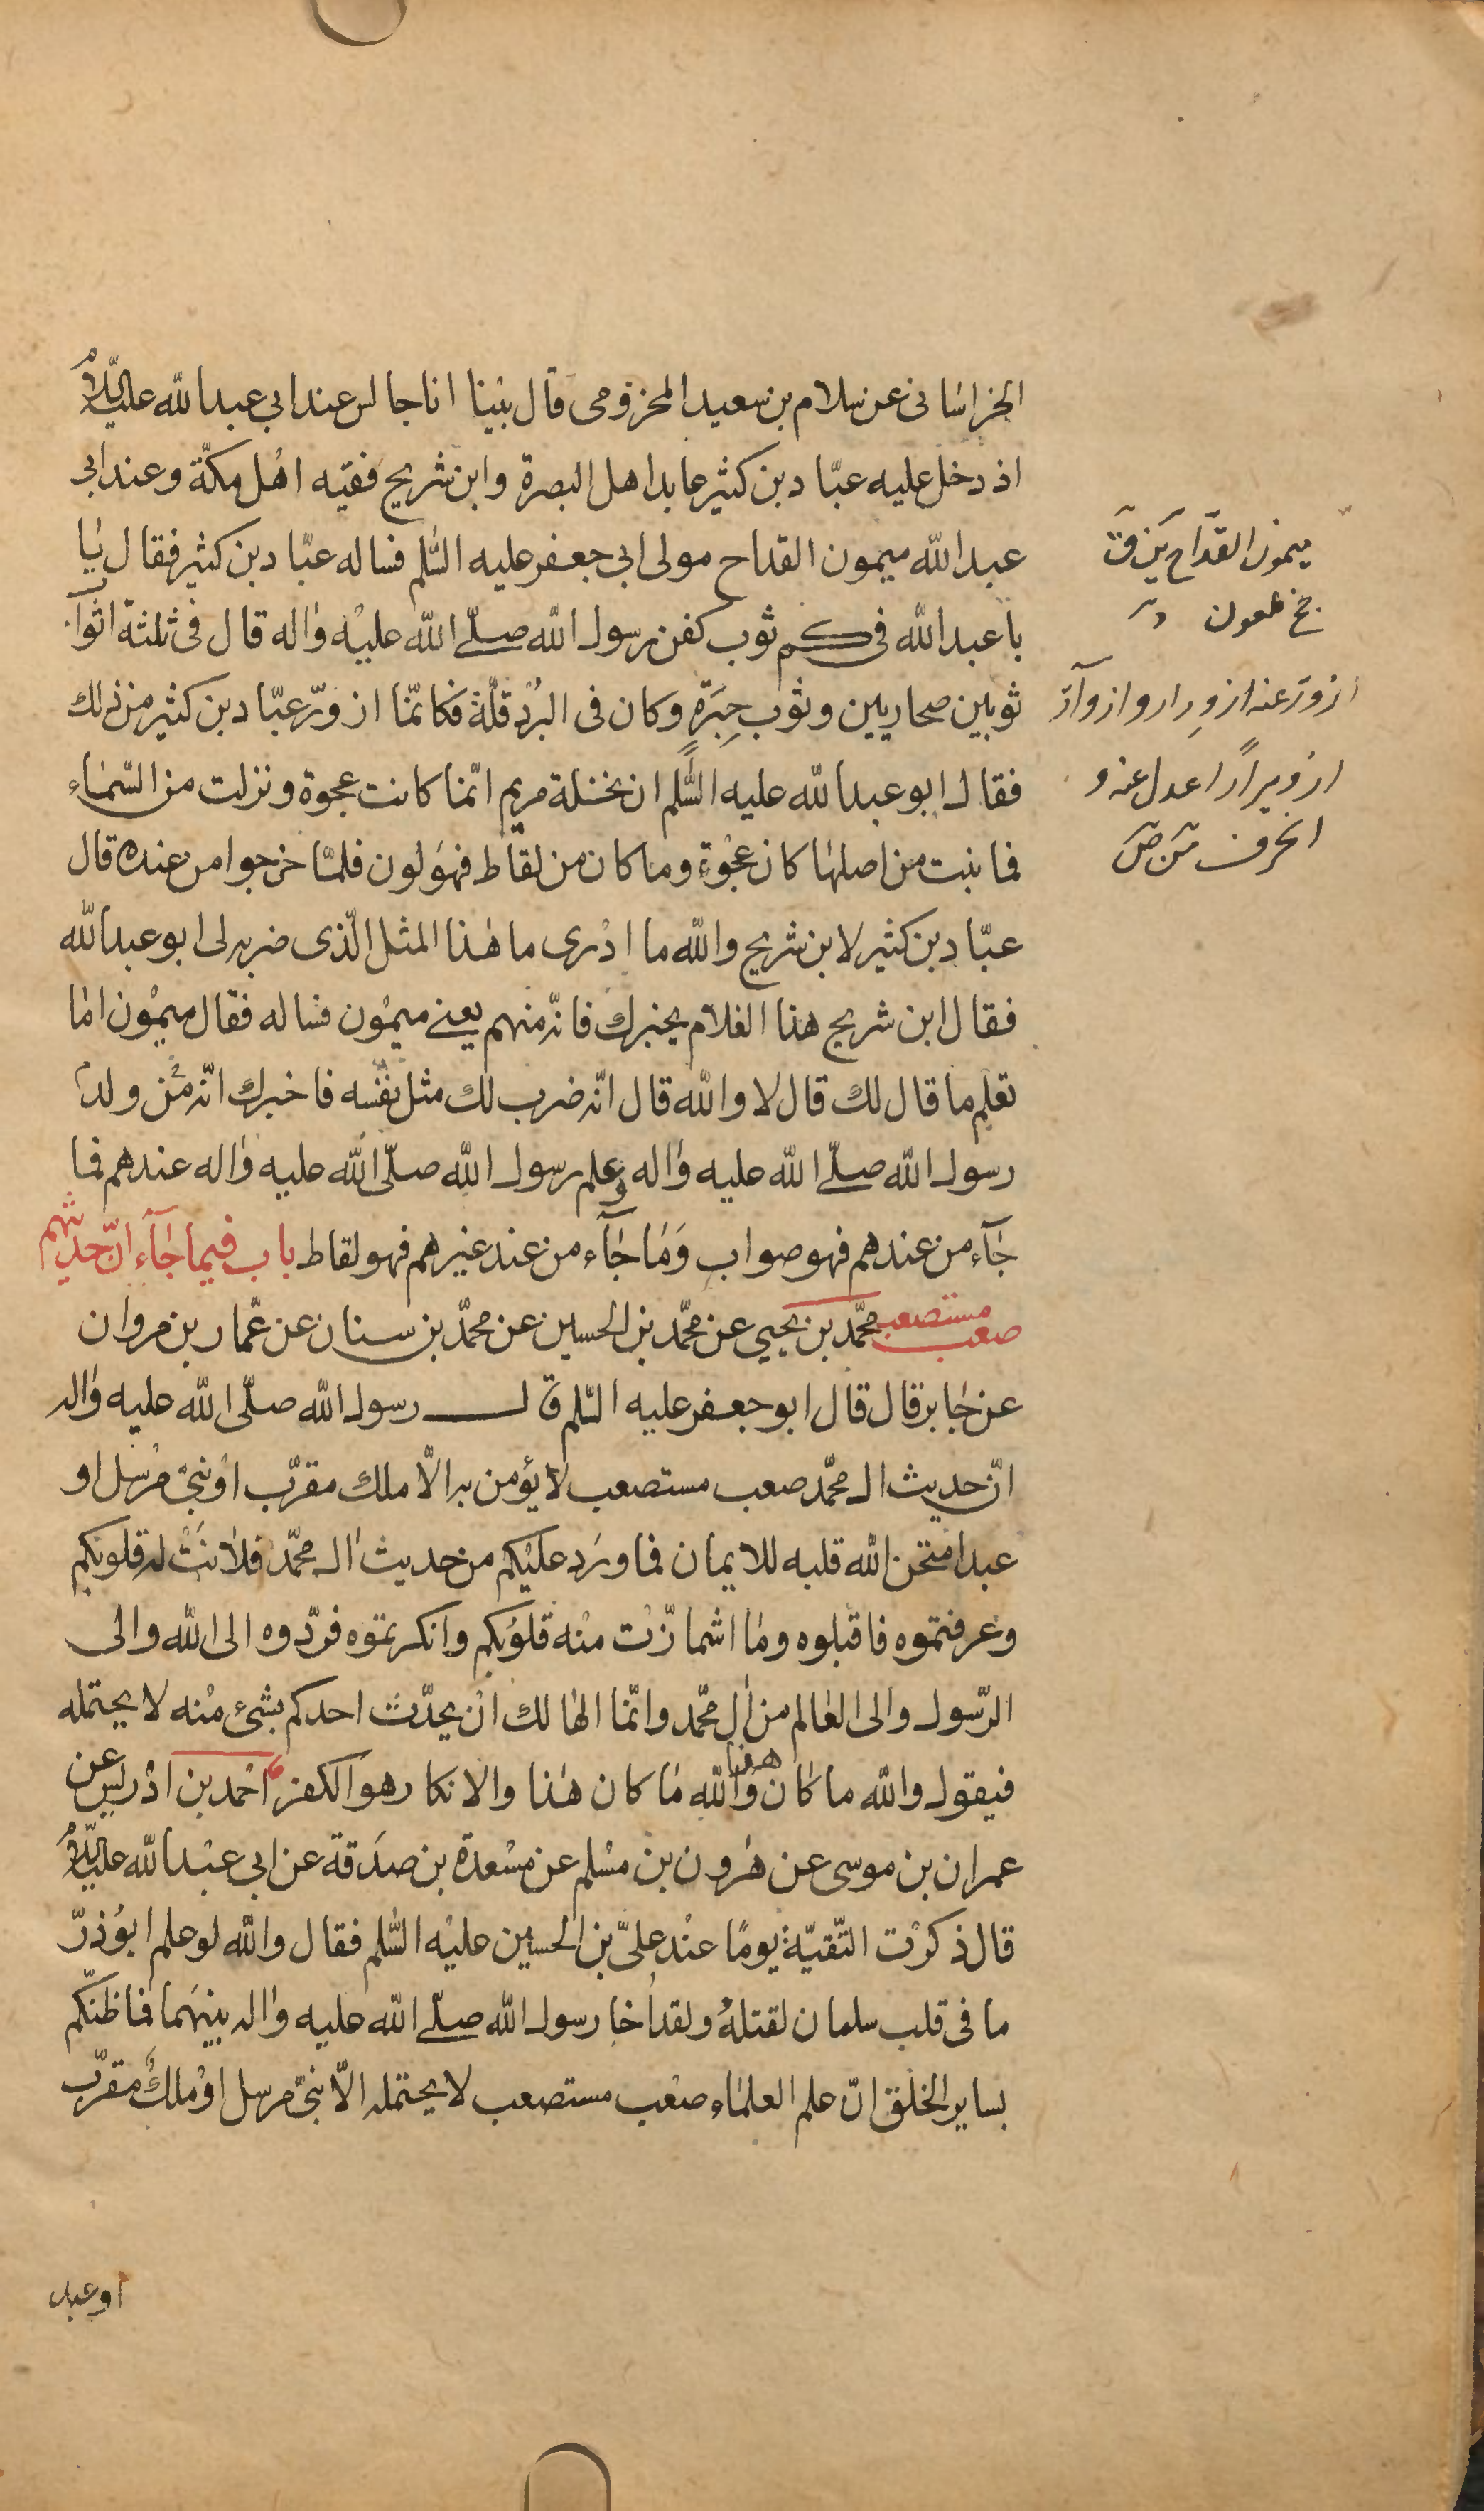 الخراسانى عن سلام بن سعيد المخزومى قال بَيْنا انا جالس عند ابى عبد الله عليه السّلام
اذ دخل عليه عبّاد بن كثير عابد اهل البصرة وابن شريح فقيه اهل مكّة وعند ابى
عبد الله ميمون القداح مولى ابى جعفر عليه السّلم فساله عبّاد بن كثير فقال يٰا
با عبد الله فى كم ثوب كفن رسول الله صلّى الله عليه واٰله قال فى ثلثة اثواب
ثوبين صحاريين وثوب حِبَرَةٍ وكان فى البُرْد قلّة فكانّما ازورّ عبّاد بن كثير من ذلك
فقال ابو عبد الله عليه السّلم ان نخلة مريم انّما كانت عجوة ونزلت من السّمٰاء
فما نبت من اصلها كان عَجْوَةً وما كان من لقاط فهو لون فلمّا خرجوا من عنده قال
عبّاد بن كثير لابن شريح والله ما ادْرى ما هٰذا المثل الّذى ضربه لى ابو عبد الله
فقال ابن شريح هذا الغلام يخبرك فانّه منهم يعنى ميمُون فساله فقال ميمُون امٰا
تعلم ما قال لك قال لا والله قال انّه ضرب لك مثل نفسه فاخبرك انّه من ولد
رسول الله صلّى الله عليه واٰله وعلم رسول الله صلّى الله عليه واٰله عندهم فما
جٰآء من عندهم فهو صواب وَمٰا جٰآء من عند غيرهم فهو لقاط باب فيما جٰآء انّ حديثهم
صعب مستصعب محمّد بن يحيى عن محمّد بن الحسين عن محمّد بن سنان عن عمّار بن مروان
عن جٰابر قال قال ابو جعفر عليه السّلم قال رسول الله صلّى الله عليه واٰله
انّ حديث ال محمّد صعب مستصعب لا يؤمن به الّا ملك مقرّب اوْ نبىّ مرْسل او
عبد امتحن الله قلبه للايمان فما ورَد عليْكم من حديث اٰل محمّد فلٰانَتْ له قلوبكم
وعرفتموه فاقبلوه ومٰا اشمازّت منْه قلوُبكم وانكرتموه فردّوه الى الله والى
الرّسول والى العٰالم من اٰل محمّد وانّما الهٰالك انْ يحدّث احدكم بشىْء منْه لا يحتمله
فيقول والله ما كٰان هذا والله مٰا كان هٰذا والانكار هو الكفر احْمد بن ادْريس عن
عمران بن موسى عن هٰرون بن مسْلم عن مسْعدة بن صدَقة عن ابى عبْد الله عليه السّلام
قال ذكرْت التّقيّة يومًا عنْد علىّ بن الحسين عليْه السّلم فقال والله لو علم ابوُذرّ
ما فى قلب سلمان لقتلهُ ولقد اٰخا رسول الله صلّى الله عليه واٰله بينهَما فما ظنّكم
بساير الخلق انّ علم العلمٰاء صعْب مستصعب لا يحتمله الّا نبىّ مرسل اوْ ملكٌ مقرّب
او عبد
ميمون القدّاح
ازورّ عنه ازوِرارا وازوآرّ
ازويرارًا عدل عنه و
انحرف